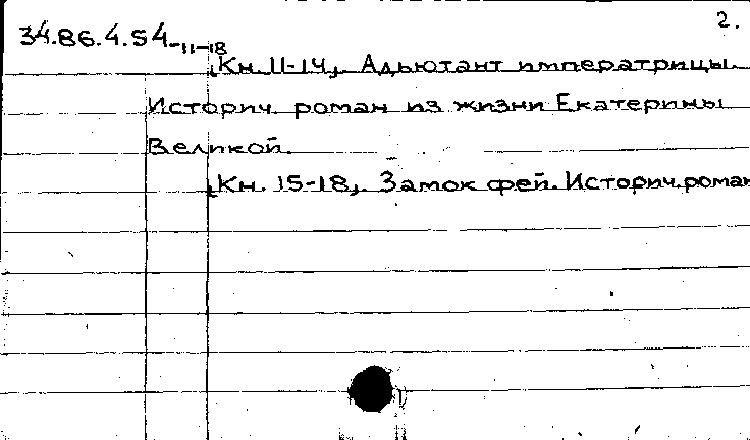 2.
34.86.4.54-11-18
[Кн. 11-14]. Адьютант императрицы.
Историч. роман из жизни Екатерины
Великой.
[Кн. 15-18]. Замок фей. Историч. роман